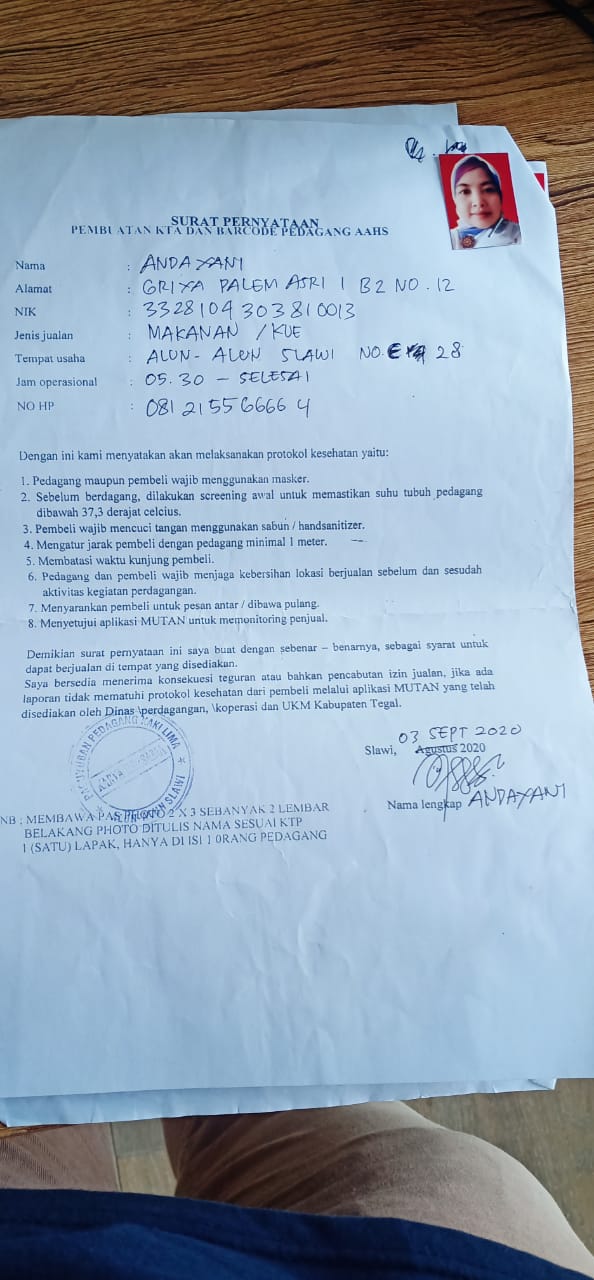 SURAT PERNYATAAN
PEMBUATAN KTA DAN BARCODE PEDAGANG AAHS
Nama : ANDAYANI
Alamat : GRIYA PALEM ASRI 1 B2 NO. 12
NIK : 3328104303810013
Jenis jualan : MAKANAN / KUE
Tempat usaha : ALUN-ALUN SLAWI NO. 28
Jam operasional : 05.30 - SELESAI
NO HP : 081 21 55 6666 4
Dengan ini kami menyatakan akan melaksanakan protokol kesehatan yaitu:
1. Pedagang maupun pembeli wajib menggunakan masker.
2. Sebelum berdagang, dilakukan screening awal untuk memastikan suhu tubuh pedagang
dibawah 37,3 derajat celcius.
3. Pembeli wajib mencuci tangan menggunakan sabun / handsanitizer.
4. Mengatur jarak pembeli dengan pedagang minimal 1 meter.
5. Membatasi waktu kunjung pembeli.
6. Pedagang dan pembeli wajib menjaga kebersihan lokasi berjualan sebelum dan sesudah
aktivitas kegiatan perdagangan.
7. Menyarankan pembeli untuk pesan antar / dibawa pulang.
8. Menyetujui aplikasi MUTAN untuk memonitoring penjual.
Demikian surat pernyataan ini saya buat dengan sebenar – benarnya, sebagai syarat untuk
dapat berjualan di tempat yang disediakan.
Saya bersedia menerima konsekuesi teguran atau bahkan pencabutan izin jualan, jika ada
laporan tidak mematuhi protokol kesehatan dari pembeli melalui aplikasi MUTAN yang telah
disediakan oleh Dinas \perdagangan, \koperasi dan UKM Kabupaten Tegal.
03 SEPT 2020
Slawi, Agustus 2020
PAGUYUBAN PEDAGANG KAKI LIMA
SLAWI
Nama lengkap ANDAYANI
NB : MEMBAWA PAS PHOTO 2 X 3 SEBANYAK 2 LEMBAR
BELAKANG PHOTO DITULIS NAMA SESUAI KTP
1 (SATU) LAPAK, HANYA DI ISI 1 0RANG PEDAGANG